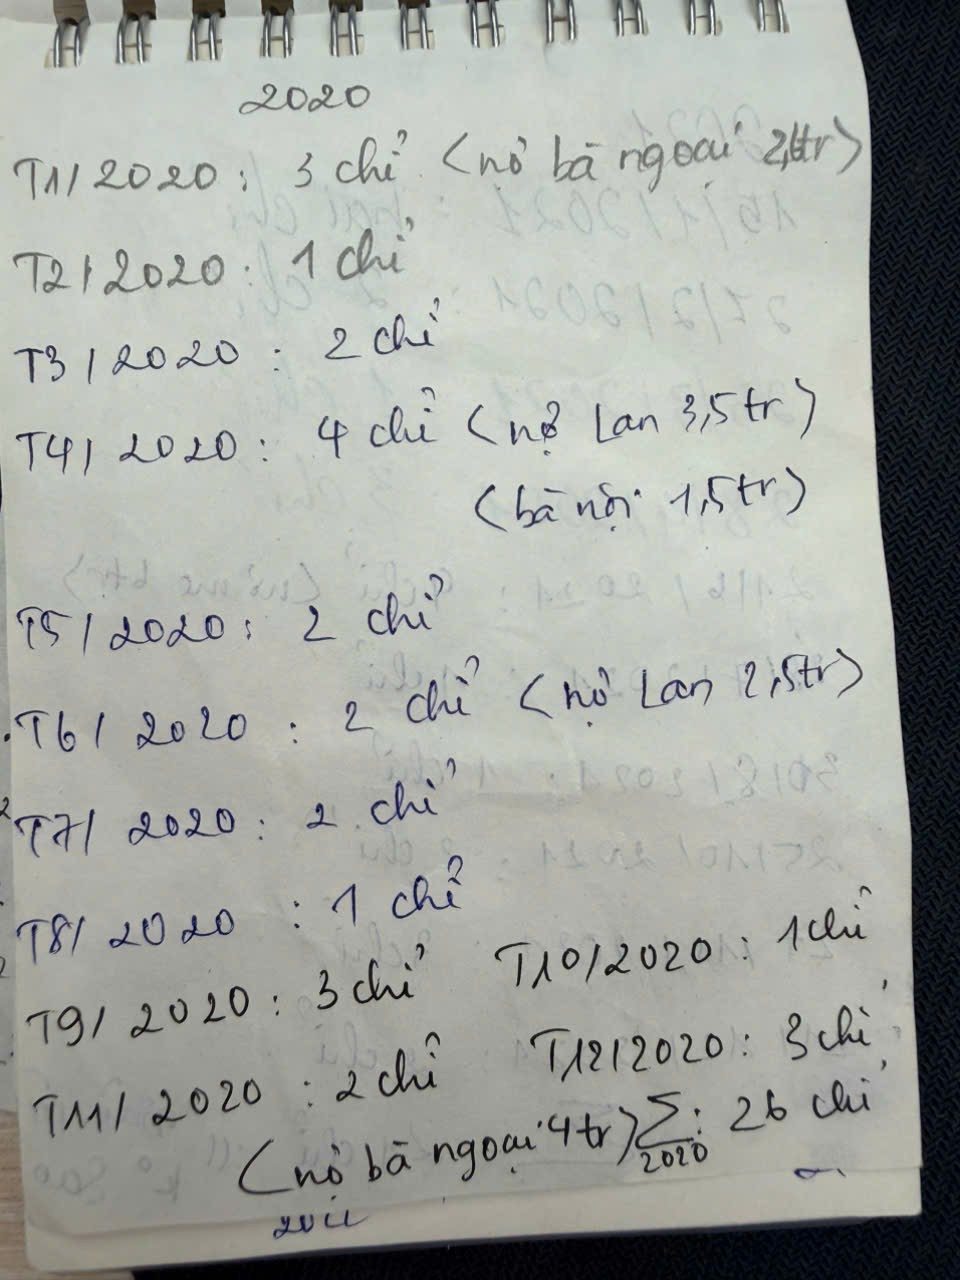 2020
T1/2020: 3 chỉ (nợ bà ngoại 2,6tr)
T2/2020: 1 chỉ
T3/2020: 2 chỉ
T4/2020: 4 chỉ (nợ Lan 3,5tr)
(bà nội 1,5tr)
T5/2020: 2 chỉ
T6/2020: 2 chỉ (nợ Lan 2,5tr)
T7/2020: 2 chỉ
T8/2020: 1 chỉ
T9/2020: 3 chỉ
T10/2020: 1 chỉ
T11/2020: 2 chỉ
T12/2020: 3 chỉ
(nợ bà ngoại 4tr)
Σ 2020: 26 chỉ